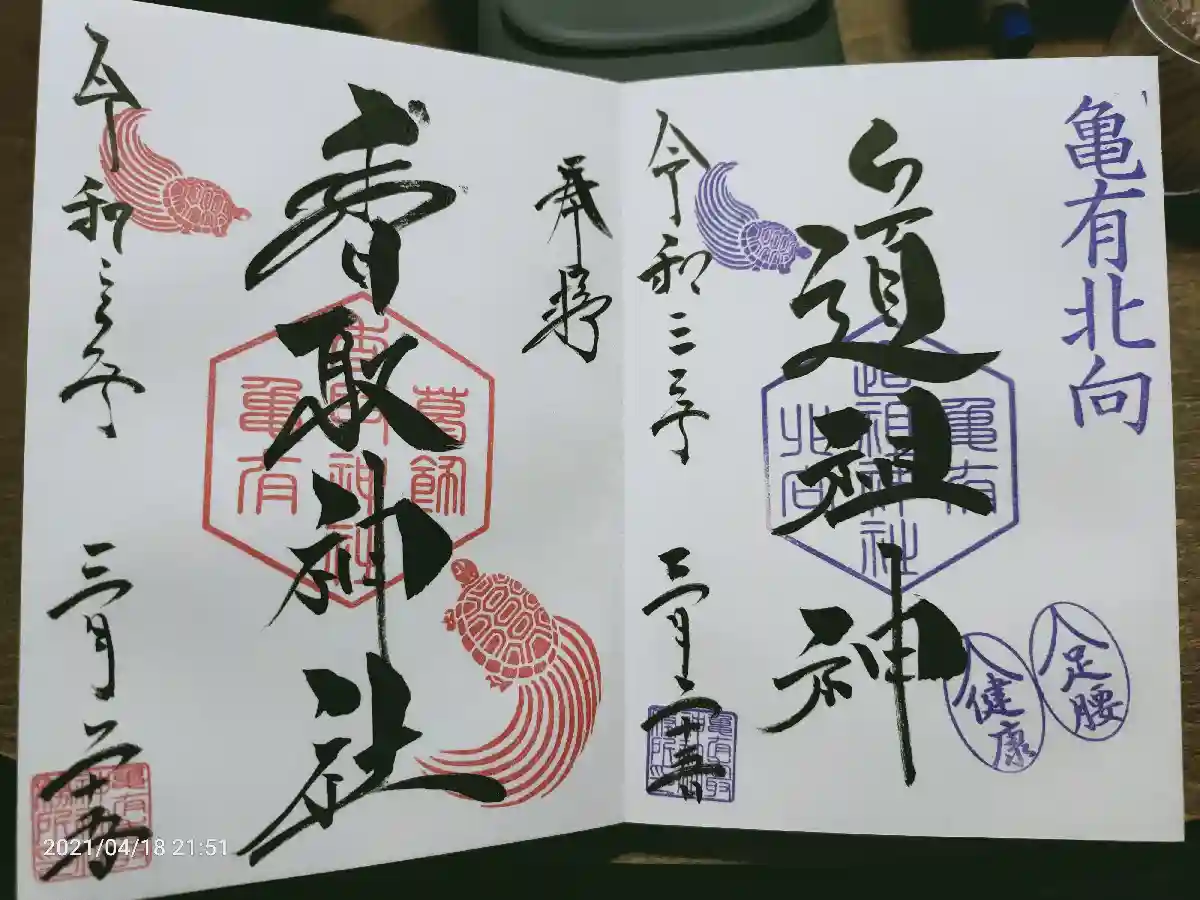 亀有北向
道祖神
足腰
健康
令和三年
三月二十五日
亀有
道祖神社
北向
奉拝
香取神社
葛飾
香取神社
亀有
令和三年
三月二十五日
2021/04/18 21:51